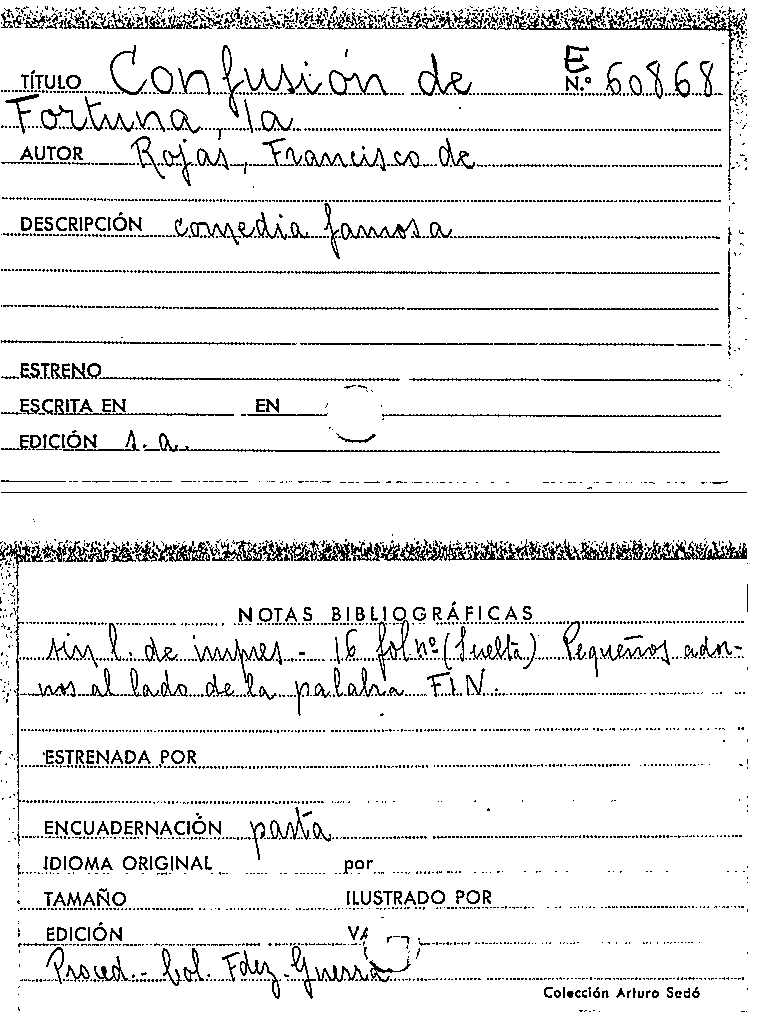 TÍTULO Confusión de E N.º 60868
Fortuna, la
AUTOR Rojas, Francisco de
DESCRIPCIÓN comedia famosa
ESTRENO
ESCRITA EN EN
EDICIÓN s.a.
NOTAS BIBLIOGRÁFICAS
sin l. de impres - 16 fol nº (Suelta) Pequeños ador-
nos al lado de la palabra FIN.
ESTRENADA POR
ENCUADERNACIÓN pasta
IDIOMA ORIGINAL por
TAMAÑO ILUSTRADO POR
EDICIÓN
Proced.- Col. Fdez-Guerra
Colección Arturo Sedó